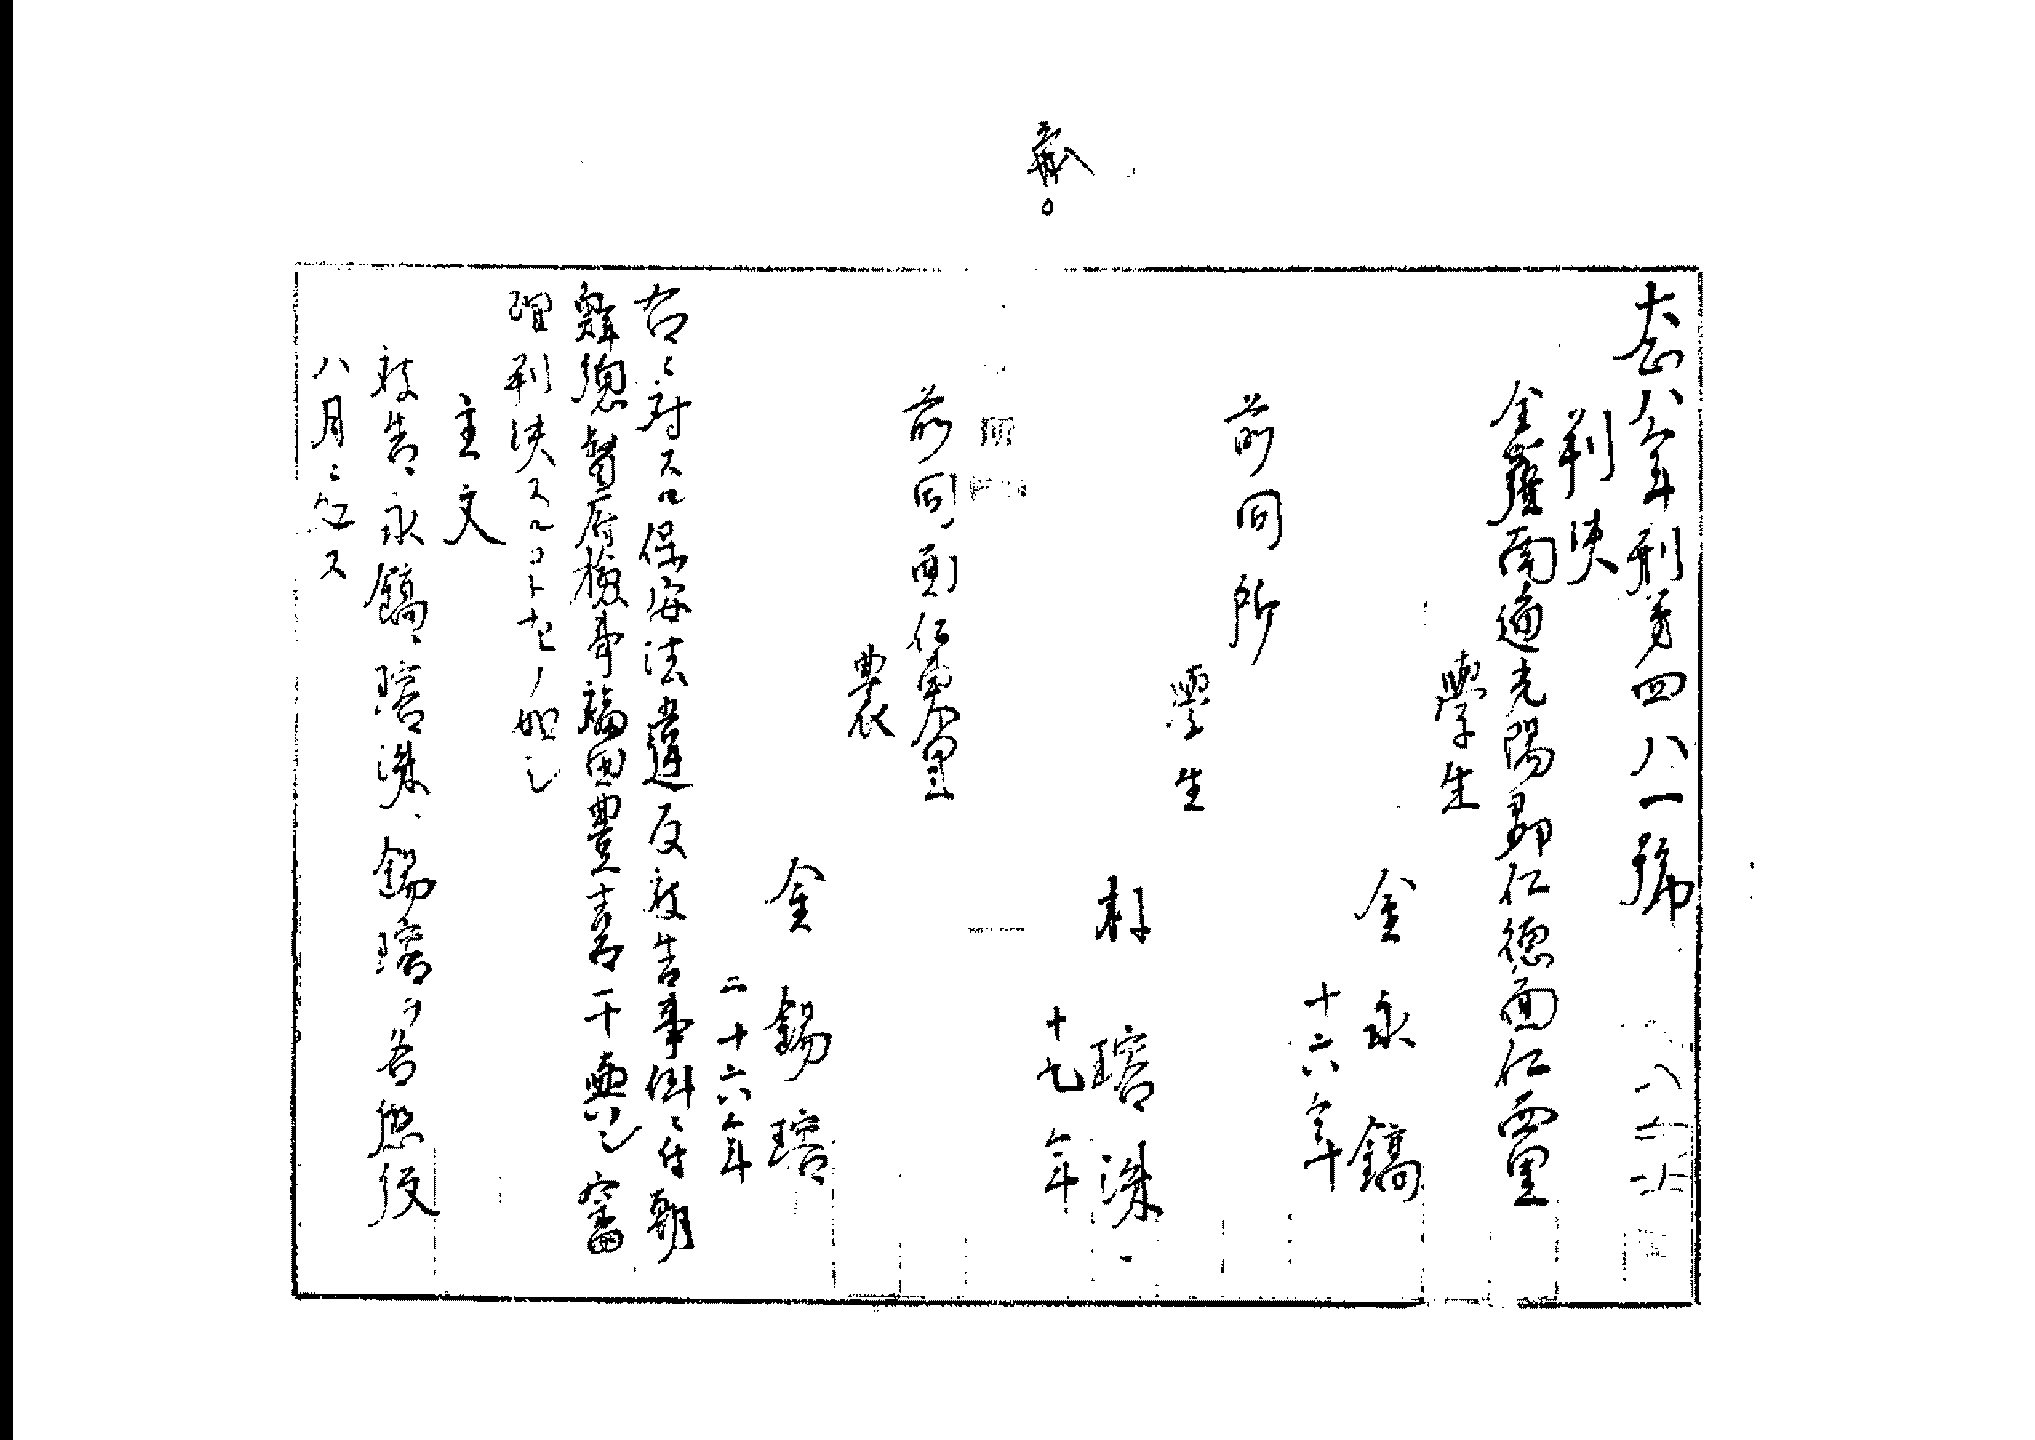 大正八年刑第四八一號
判決
全羅南道光陽郡仁德面仁西里
學生
金永鎬
十六年
前同所
學生
朴瑢洙
十七年
前同郡同面仁東里
農
金錫瑢
二十六年
右ニ對スル保安法違反被告事件ニ付朝
鮮總督府檢事福田豊壽干與シ審
理判決スルコト左ノ如シ
主文
被告永鎬、瑢洙、錫瑢ヲ各懲役
八月ニ処ス